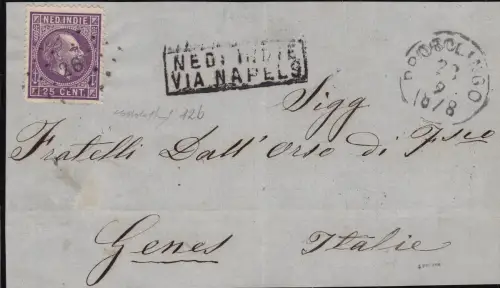 NED. INDIE
26
25 CENT
NED. INDIE
VIA NAPELS
PROBOLINGO
22
9
1878
12b
Sigg
Fratelli Dall' Orso di Fsco
Genes Italie